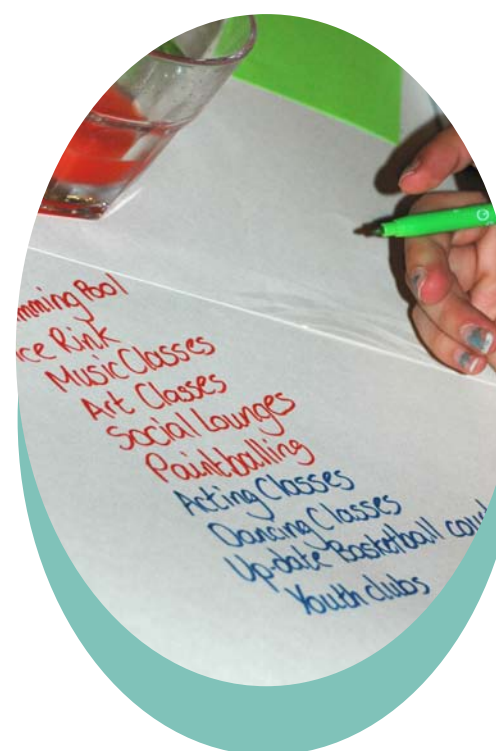 mming Pool
ce Rink
Music Classes
Art Classes
Social Lounges
Paintballing
Acting Classes
Dancing Classes
Up-date Basketball cour
Youth clubs